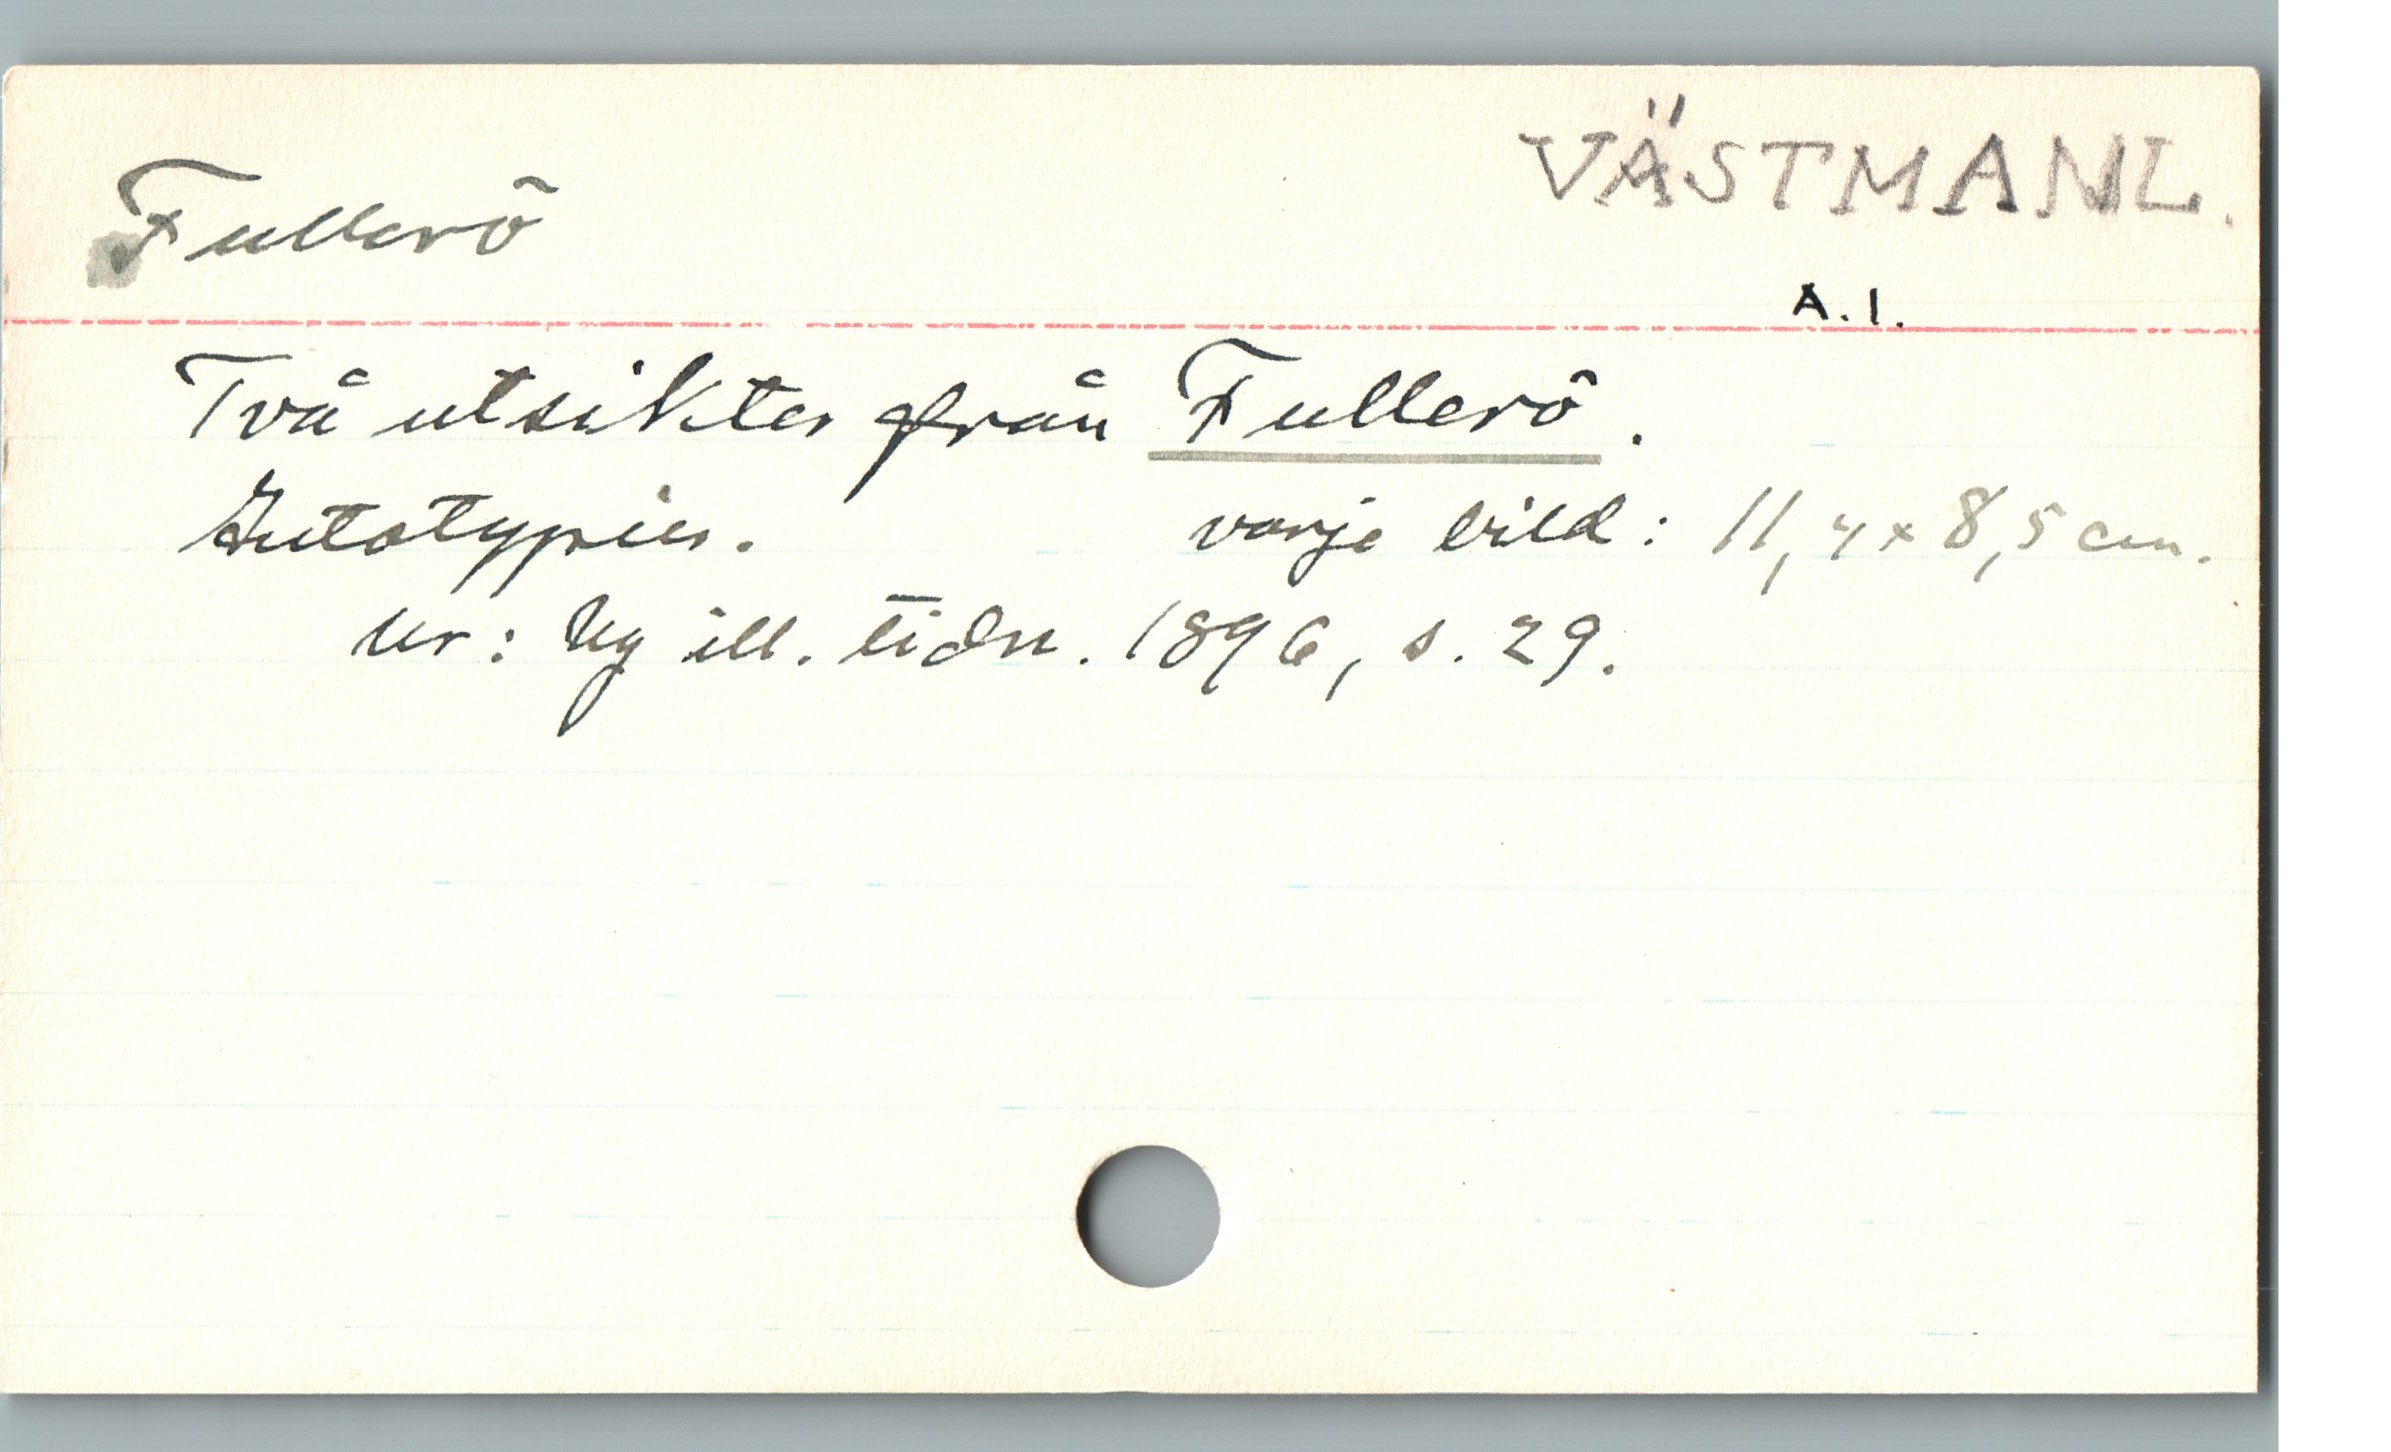 VÄSTMANL.
Fullerö
A. 1.
Två utsikter från Fullerö.
Autotypier. varje bild: 11,4 x 8,5 cm.
ur: Ny ill. tidn. 1896, s. 29.